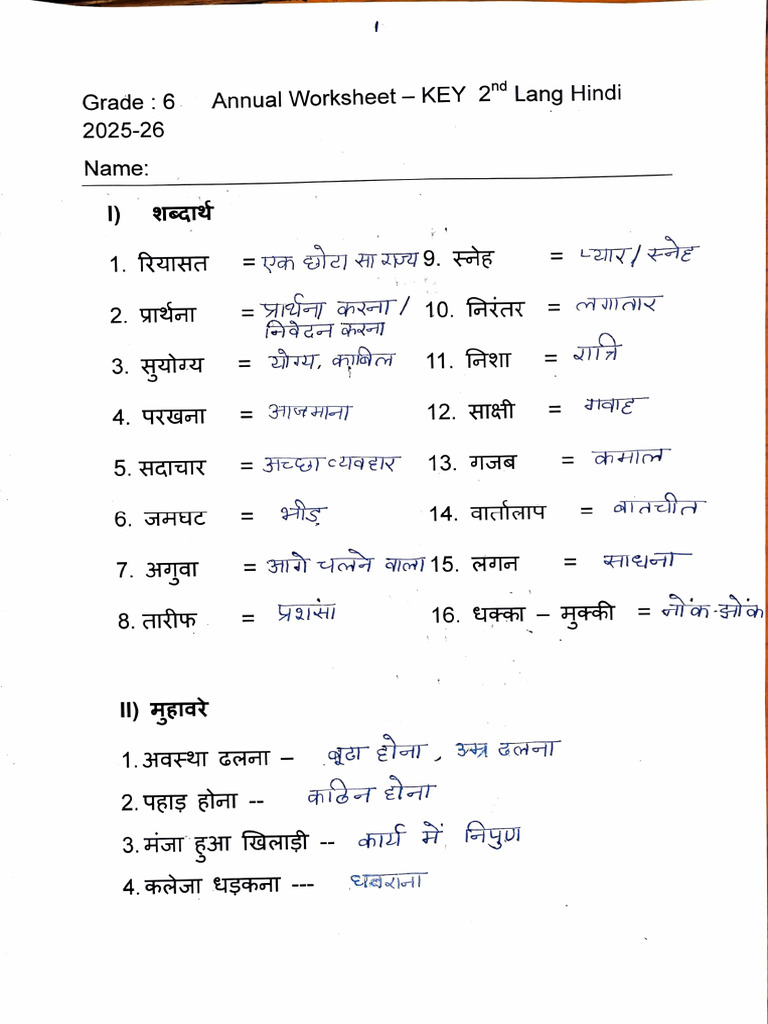 1
Grade : 6 Annual Worksheet – KEY 2nd Lang Hindi
2025-26
Name:
I) शब्दार्थ
1. रियासत = एक छोटा सा राज्य 9. स्नेह = प्यार / स्नेह
2. प्रार्थना = प्रार्थना करना / 10. निरंतर = लगातार
निवेदन करना
3. सुयोग्य = योग्य, काबिल 11. निशा = रात्रि
4. परखना = आजमाना 12. साक्षी = गवाह
5. सदाचार = अच्छा व्यवहार 13. गजब = कमाल
6. जमघट = भीड़ 14. वार्तालाप = बातचीत
7. अगुवा = आगे चलने वाला 15. लगन = साधना
8. तारीफ = प्रशसां 16. धक्का – मुक्की = नोंक-झोंक
II) मुहावरे
1. अवस्था ढलना – बूढा होना , उम्र ढलना
2. पहाड़ होना -- कठिन होना
3. मंजा हुआ खिलाड़ी -- कार्य में निपुण
4. कलेजा धड़कना --- घबराना